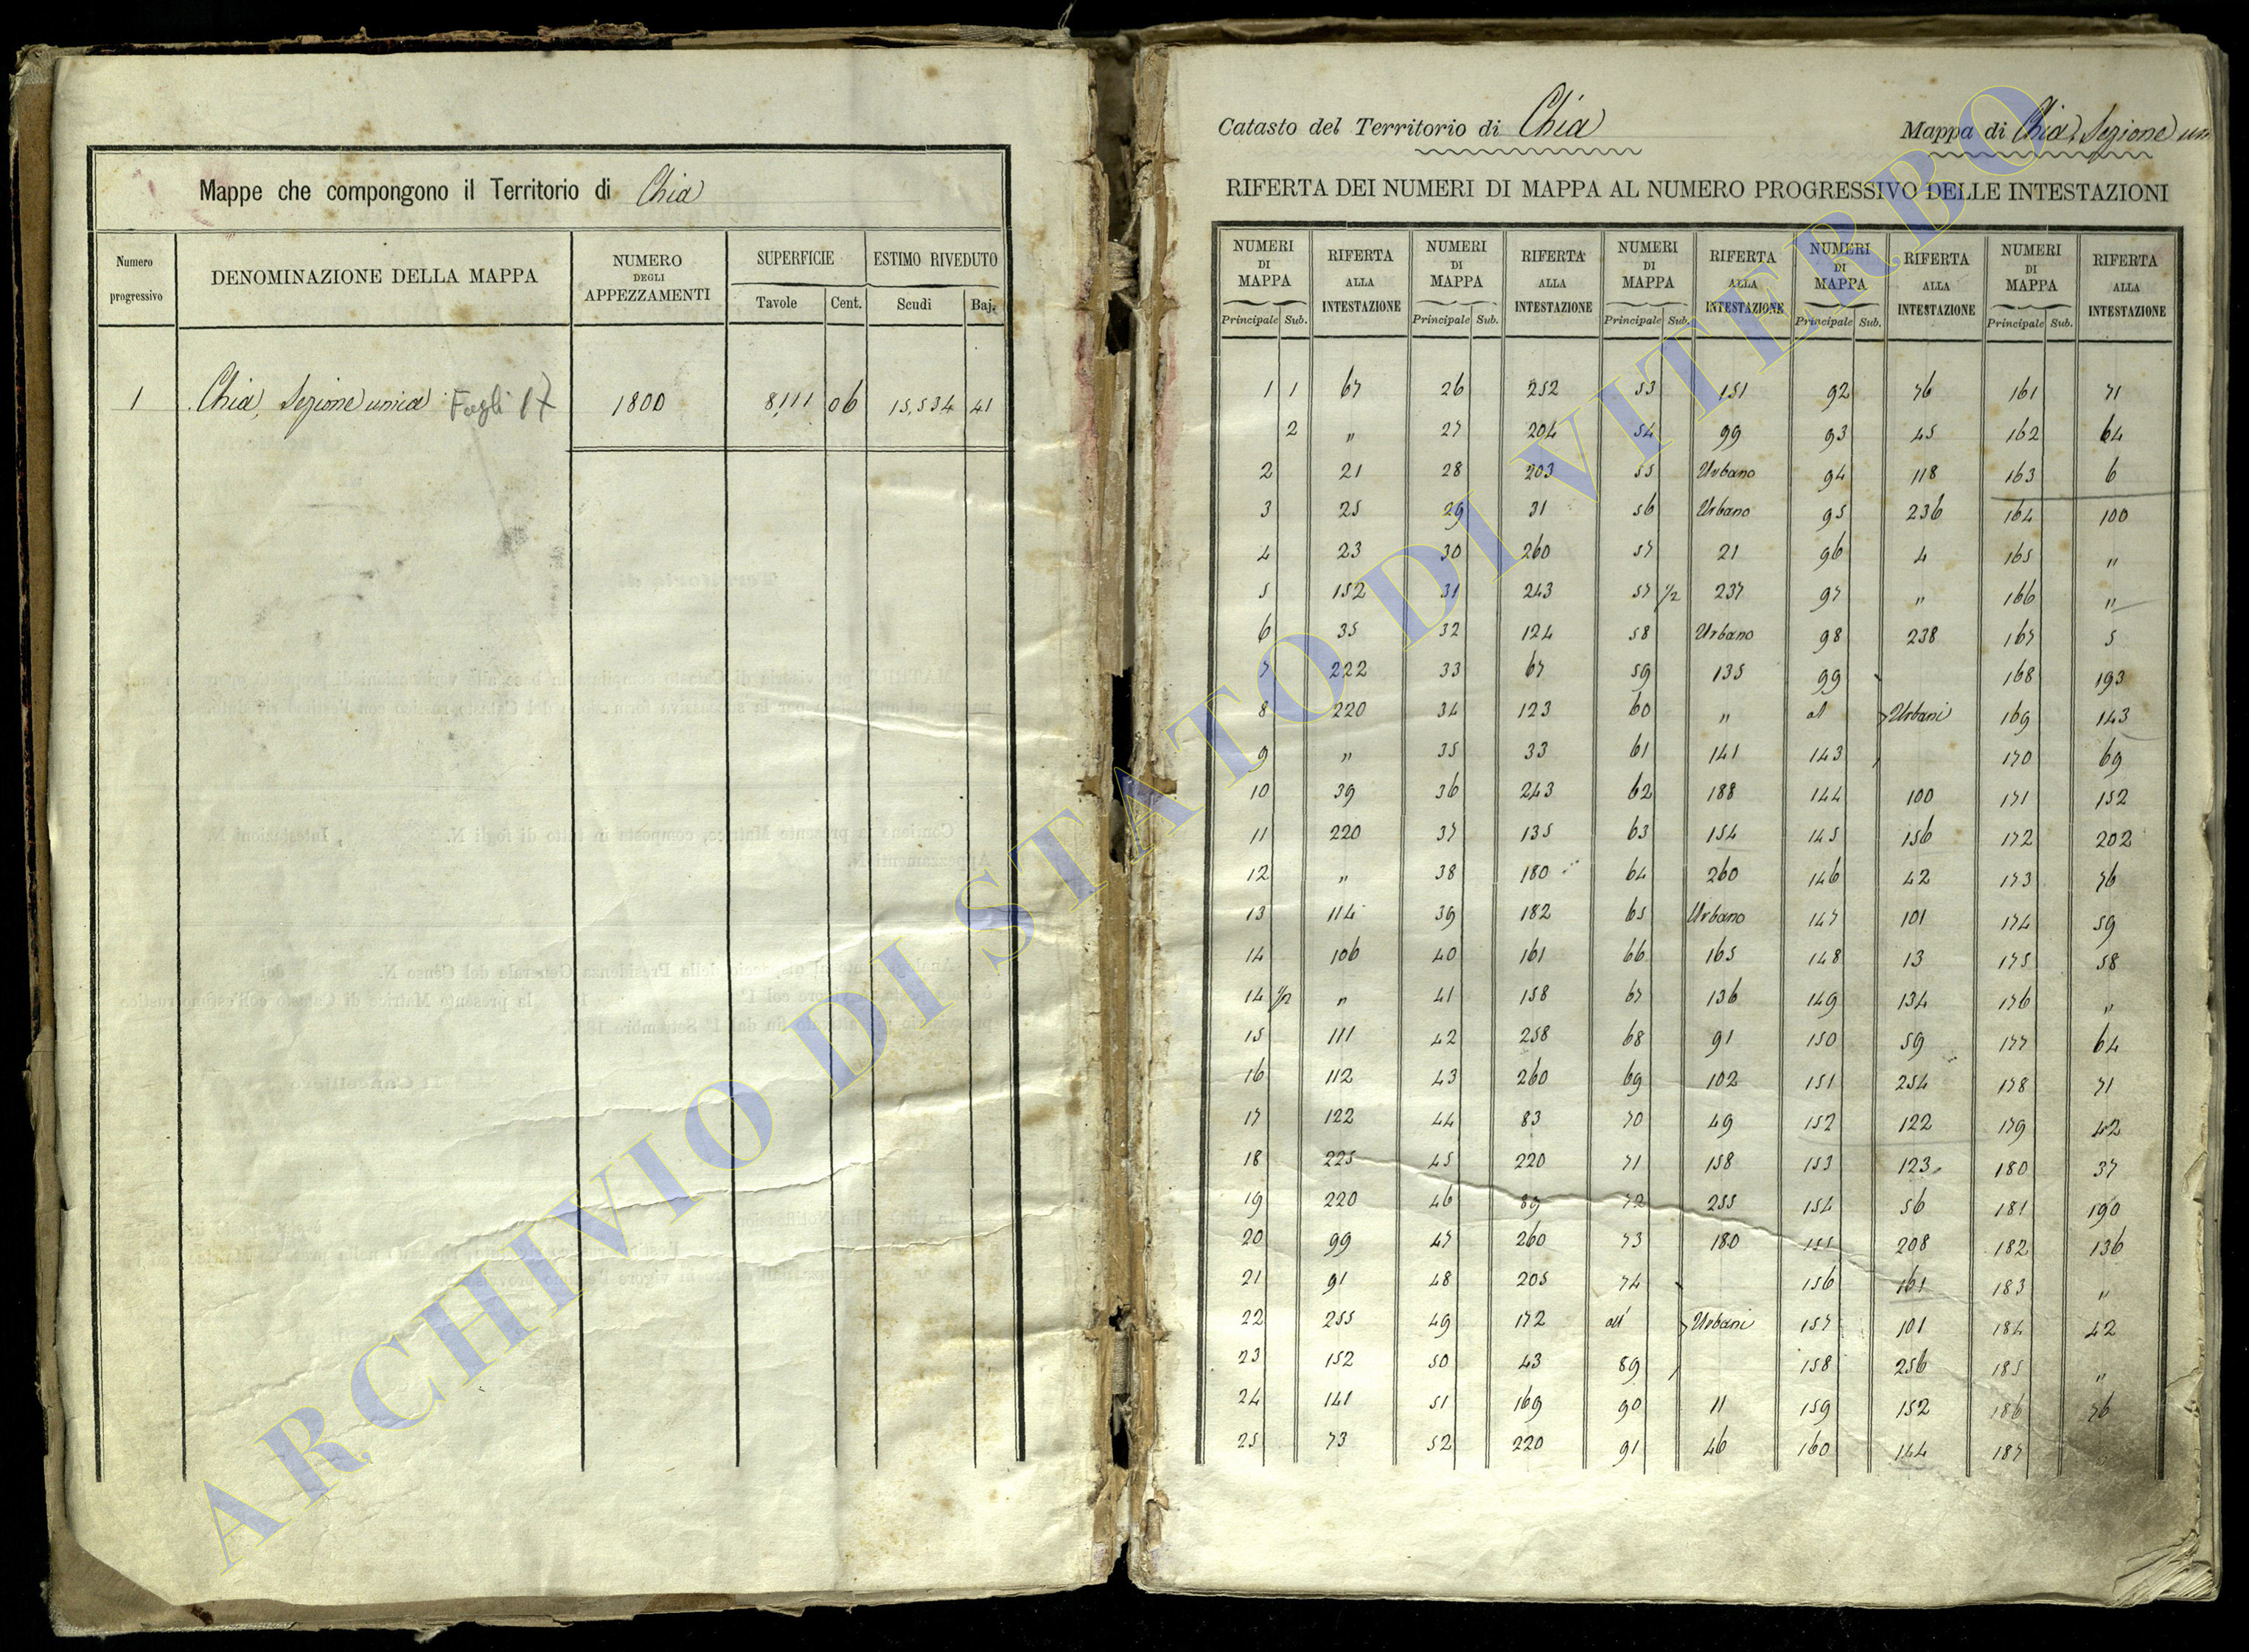 Mappe che compongono il Territorio di Chia
Numero progressivo
DENOMINAZIONE DELLA MAPPA
NUMERO DEGLI APPEZZAMENTI
SUPERFICIE
Tavole Cent.
ESTIMO RIVEDUTO
Scudi Baj.
1 Chia, Sezione unica Fogli 17 1800 8111 06 15,534 41
Catasto del Territorio di Chia
Mappa di Chia, Sezione un
RIFERTA DEI NUMERI DI MAPPA AL NUMERO PROGRESSIVO DELLE INTESTAZIONI
NUMERI DI MAPPA RIFERTA ALLA INTESTAZIONE NUMERI DI MAPPA RIFERTA ALLA INTESTAZIONE NUMERI DI MAPPA RIFERTA ALLA INTESTAZIONE NUMERI DI MAPPA RIFERTA ALLA INTESTAZIONE NUMERI DI MAPPA RIFERTA ALLA INTESTAZIONE
Principale Sub. Principale Sub. Principale Sub. Principale Sub. Principale Sub.
1 1 67 26 252 53 151 92 76 161 71
2 " 27 204 54 99 93 45 162 64
2 21 28 203 55 Urbano 94 118 163 6
3 25 29 31 56 Urbano 95 236 164 100
4 23 30 260 57 21 96 4 165 "
5 152 31 243 57 1/2 237 97 " 166 "
6 35 32 124 58 Urbano 98 238 167 5
7 222 33 67 59 135 99 168 193
8 220 34 123 60 " al Urbani 169 143
9 " 35 33 61 141 143 170 69
10 39 36 243 62 188 144 100 171 152
11 220 37 135 63 154 145 156 172 202
12 " 38 180 64 260 146 42 173 76
13 114 39 182 65 Urbano 147 101 174 59
14 106 40 161 66 165 148 13 175 58
14 1/2 " 41 158 67 136 149 134 176 "
15 111 42 258 68 91 150 59 177 64
16 112 43 260 69 102 151 254 178 71
17 122 44 83 70 49 152 122 179 42
18 225 45 220 71 158 153 123 180 37
19 220 46 89 72 255 154 56 181 190
20 99 47 260 73 180 155 208 182 136
21 91 48 205 74 156 161 183 "
22 255 49 172 al Urbani 157 101 184 42
23 152 50 43 89 158 256 185 "
24 141 51 169 90 11 159 152 186 76
25 73 52 220 91 46 160 144 187
ARCHIVIO DI STATO DI VITERBO